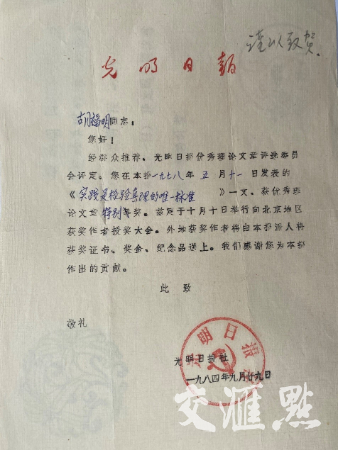 谨以致贺
光明日报
胡福明同志：
您好！
经群众推荐、光明日报优秀理论文章评选委员
会评定，您在本报一九七八年五月十一日发表的
《实践是检验真理的唯一标准》一文，获优秀理
论文章特别奖。兹定于十月十日举行向北京地区
获奖作者授奖大会。外地获奖作者将由本报派人将
获奖证书、奖金、纪念品送上。我们感谢您为本报
作出的贡献。
此致
敬礼
光明日报社
一九八四年九月廿九日
光明日报社
交汇点